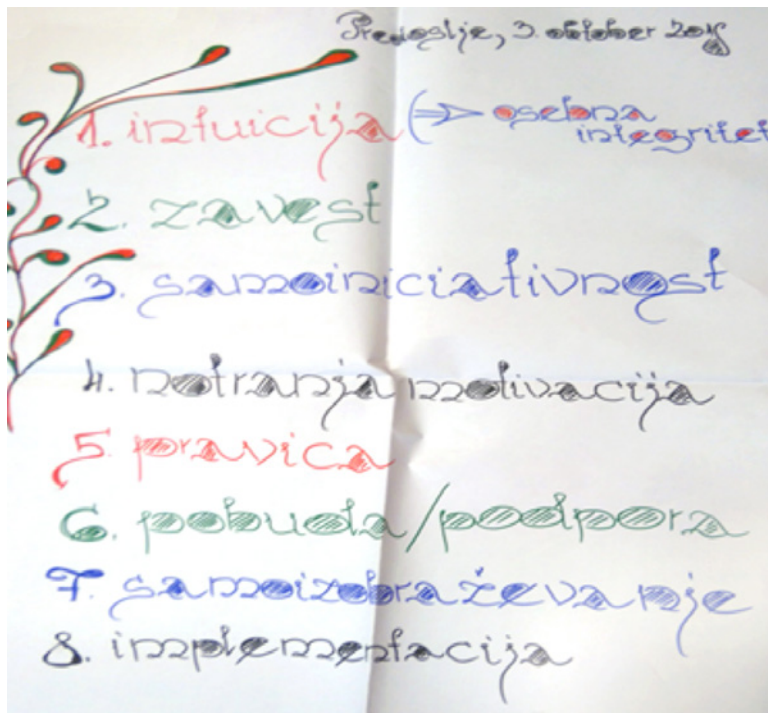 Predoslje, 3. oktober 2015
1. intuicija (⇒ osebna
integritet
2. zavest
3. samoiniciativnost
4. notranja motivacija
5. pravica
6. pobuda/podpora
7. samoizobraževanje
8. implementacija